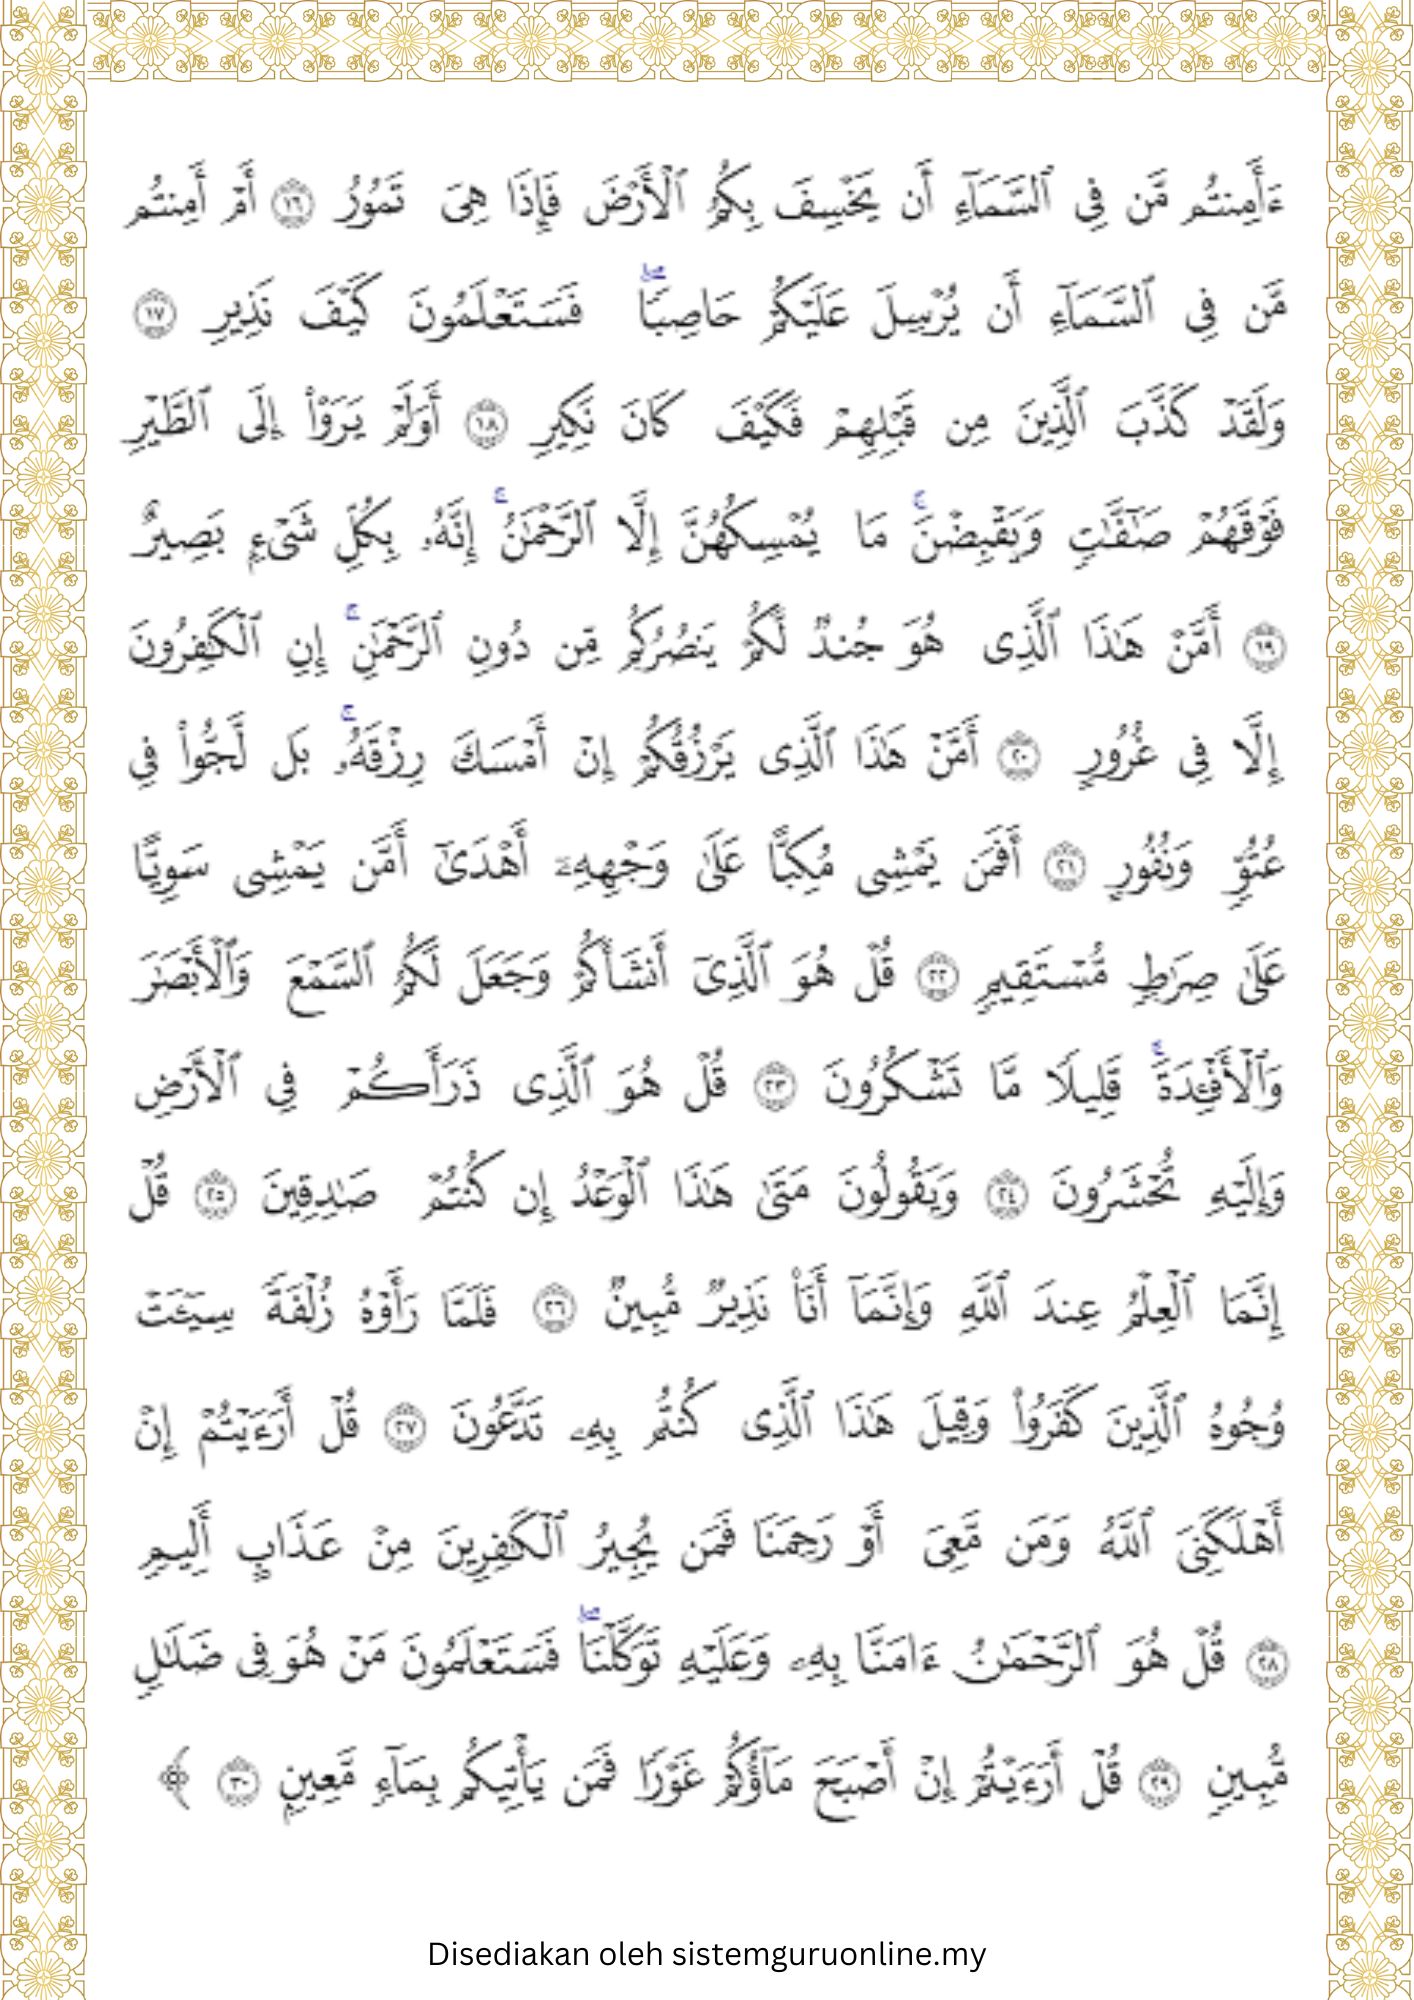 ءَأَمِنتُم مَّن فِى ٱلسَّمَآءِ أَن يَخْسِفَ بِكُمُ ٱلْأَرْضَ فَإِذَا هِىَ تَمُورُ ١٦ أَمْ أَمِنتُم
مَّن فِى ٱلسَّمَآءِ أَن يُرْسِلَ عَلَيْكُمْ حَاصِبًاۖ فَسَتَعْلَمُونَ كَيْفَ نَذِيرِ ١٧
وَلَقَدْ كَذَّبَ ٱلَّذِينَ مِن قَبْلِهِمْ فَكَيْفَ كَانَ نَكِيرِ ١٨ أَوَلَمْ يَرَوْا۟ إِلَى ٱلطَّيْرِ
فَوْقَهُمْ صَٰٓفَّٰتٍ وَيَقْبِضْنَۚ مَا يُمْسِكُهُنَّ إِلَّا ٱلرَّحْمَٰنُۚ إِنَّهُۥ بِكُلِّ شَىْءٍۭ بَصِيرٌ
١٩ أَمَّنْ هَٰذَا ٱلَّذِى هُوَ جُندٌ لَّكُمْ يَنصُرُكُم مِّن دُونِ ٱلرَّحْمَٰنِۚ إِنِ ٱلْكَٰفِرُونَ
إِلَّا فِى غُرُورٍ ٢٠ أَمَّنْ هَٰذَا ٱلَّذِى يَرْزُقُكُمْ إِنْ أَمْسَكَ رِزْقَهُۥۚ بَل لَّجُّوا۟ فِى
عُتُوٍّ وَنُفُورٍ ٢١ أَفَمَن يَمْشِى مُكِبًّا عَلَىٰ وَجْهِهِۦٓ أَهْدَىٰٓ أَمَّن يَمْشِى سَوِيًّا
عَلَىٰ صِرَٰطٍ مُّسْتَقِيمٍ ٢٢ قُلْ هُوَ ٱلَّذِىٓ أَنشَأَكُمْ وَجَعَلَ لَكُمُ ٱلسَّمْعَ وَٱلْأَبْصَٰرَ
وَٱلْأَفْـِٔدَةَۚ قَلِيلًا مَّا تَشْكُرُونَ ٢٣ قُلْ هُوَ ٱلَّذِى ذَرَأَكُمْ فِى ٱلْأَرْضِ
وَإِلَيْهِ تُحْشَرُونَ ٢٤ وَيَقُولُونَ مَتَىٰ هَٰذَا ٱلْوَعْدُ إِن كُنتُمْ صَٰدِقِينَ ٢٥ قُلْ
إِنَّمَا ٱلْعِلْمُ عِندَ ٱللَّهِ وَإِنَّمَآ أَنَا۠ نَذِيرٌ مُّبِينٌ ٢٦ فَلَمَّا رَأَوْهُ زُلْفَةً سِيٓـَٔتْ
وُجُوهُ ٱلَّذِينَ كَفَرُوا۟ وَقِيلَ هَٰذَا ٱلَّذِى كُنتُم بِهِۦ تَدَّعُونَ ٢٧ قُلْ أَرَءَيْتُمْ إِنْ
أَهْلَكَنِىَ ٱللَّهُ وَمَن مَّعِىَ أَوْ رَحِمَنَا فَمَن يُجِيرُ ٱلْكَٰفِرِينَ مِنْ عَذَابٍ أَلِيمٍ
٢٨ قُلْ هُوَ ٱلرَّحْمَٰنُ ءَامَنَّا بِهِۦ وَعَلَيْهِ تَوَكَّلْنَاۖ فَسَتَعْلَمُونَ مَنْ هُوَ فِى ضَلَٰلٍ
مُّبِينٍ ٢٩ قُلْ أَرَءَيْتُمْ إِنْ أَصْبَحَ مَآؤُكُمْ غَوْرًا فَمَن يَأْتِيكُم بِمَآءٍ مَّعِينٍۭ ٣٠
Disediakan oleh sistemguruonline.my